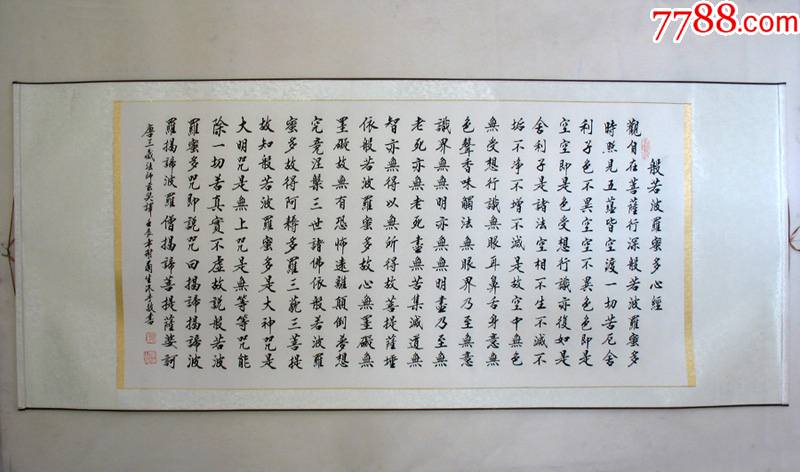 7788.com
般若波羅蜜多心經
觀自在菩薩行深般若波羅蜜多
時照見五蘊皆空渡一切苦厄舍
利子色不異空空不異色色即是
空空即是色受想行識亦復如是
舍利子是諸法空相不生不滅不
垢不淨不增不減是故空中無色
無受想行識無眼耳鼻舌身意無
色聲香味觸法無眼界乃至無意
識界無無明亦無無明盡乃至無
老死亦無老死盡無苦集滅道無
智亦無得以無所得故菩提薩埵
依般若波羅蜜多故心無罣礙無
罣礙故無有恐怖遠離顛倒夢想
究竟涅槃三世諸佛依般若波羅
蜜多故得阿耨多羅三藐三菩提
故知般若波羅蜜多是大神咒是
大明咒是無上咒是無等等咒能
除一切苦真實不虛故說般若波
羅蜜多咒即說咒曰揭諦揭諦波
羅揭諦波羅僧揭諦菩提薩婆訶
唐三藏法師玄奘譯壬辰年書